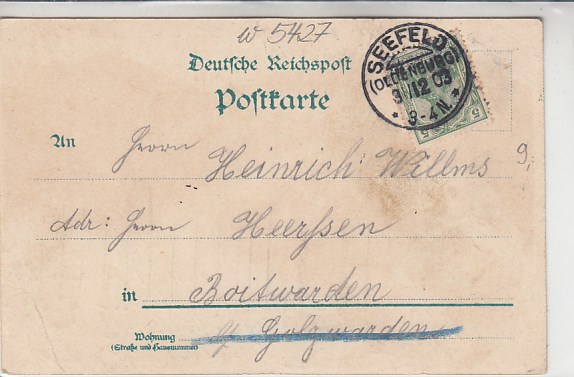 w 5427
SEEFELD
(OLDENBURG)
3/12 03
* 3-4N. *
5 5
Deutsche Reichspost
Postkarte
An Herrn
Heinrich Willms
9,
Adr: Herrn Heerssen
in Boitwarden
Wohnung
(Straße und Hausnummer)
Golzwarden